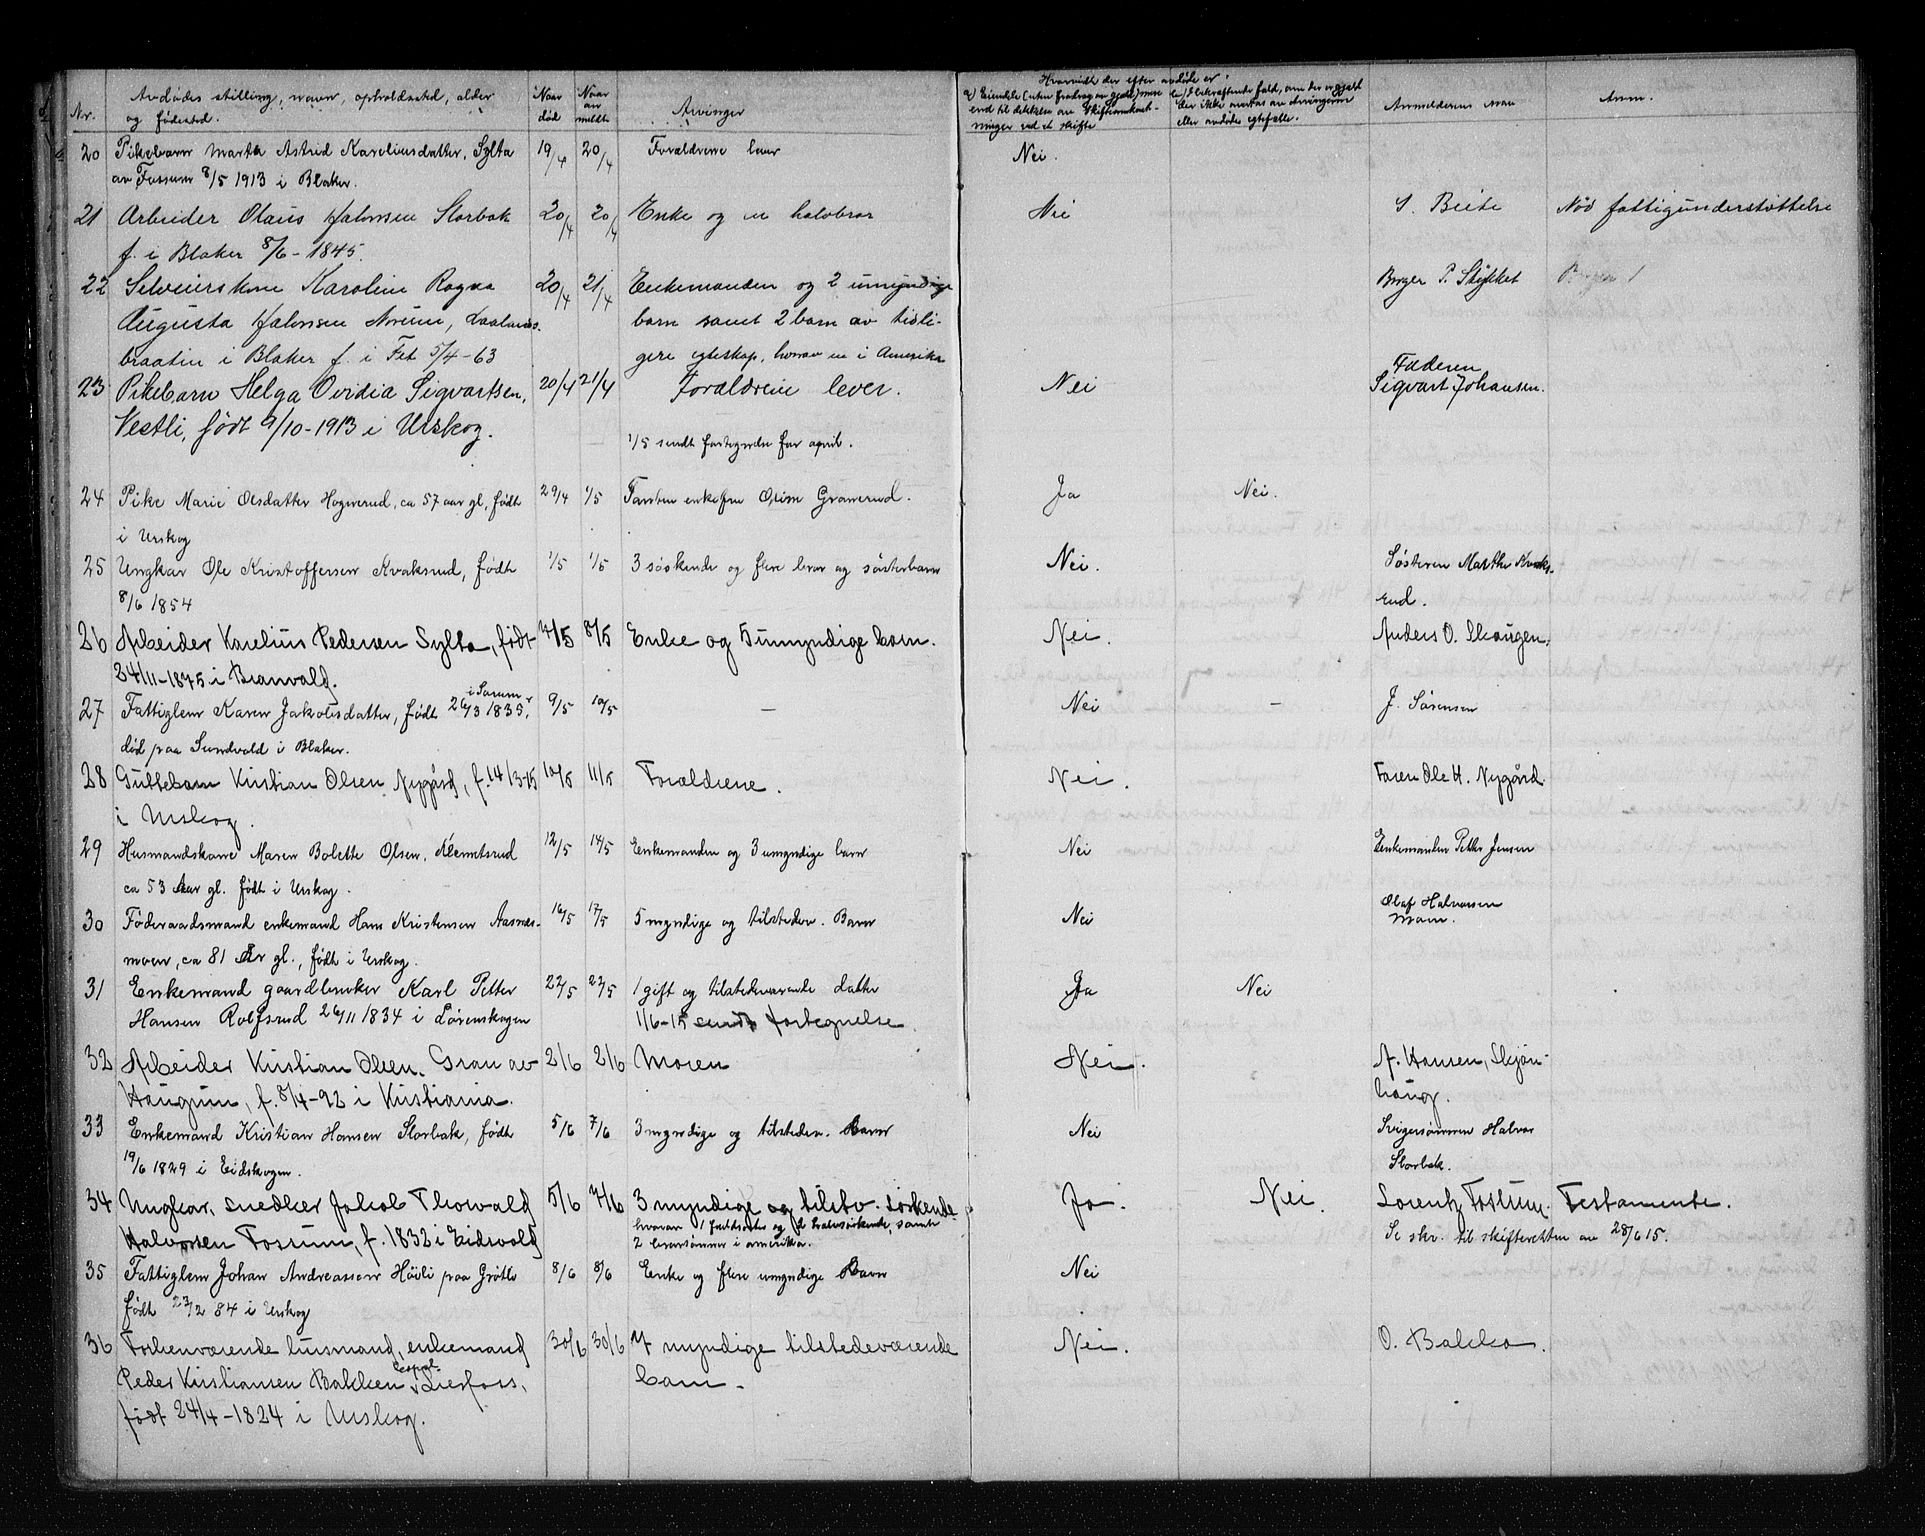 Nr. Avdødes stilling, navn, opholdssted, alder og fødested. Naar død Naar anmeldt Arvinger Hvorvidt der efter avdøde er: a) Eiendele (uten fradrag av gjæld) mere end til dækkelse av skiftesomkostninger ved et skifte eller avdødes egtefælle. Anmelderens navn Anm.
20 Pikebarn Marta Astrid Kareliusdatter, Sylta 19/4 20/4 Forældrene lever Nei.
av Fossum 8/5 1913 i Blaker.
21 Arbeider Olaus Halvorsen Storbak 20/4 20/4 Enke og en halvbror Nei Nød fattigunderstøttelse
f. i Blaker 8/6 - 1845.
22 Karoline Ragna 20/4 21/4 Enkemanden og 2 umyndige Borger P. Stykket
Augusta Halvorsen
barn samt 2 barn av tidli-
braatin i Blaker f. i Fet 5/4-63 gere egteskap, hvorav en i Amerika
23 Pikebarn Helga Ovidia Sigvartsen, 20/4 21/4 Forældrene lever. Nei Faderen
Sigvart Johansen.
Vestli, født 9/10-1913 i Urskog.
1/5 sendt fortegnelse for april.
24 Pike Marie Olsdatter Hognerud, ca 57 aar gl, født 29/4 1/5 enkefru Oline Granerud. Ja Nei.
i Urskog
25 Ungkar Ole Kristoffersen Kvaksrud, født 1/5 1/5 3 søskende og flere bror og søsterbarn Nei. Søsteren Marthe Kvaks-
8/6 1854 rud.
26 Arbeider Karelius Pedersen Sylta, født 4/5 8/5 Enke og 5 umyndige barn. Nei. Anders O. Skaugen.
24/11-1875 i Brandvold.
27 Fattiglem Karen Jakobsdatter, født 26/3 1835, i Sørum 9/5 10/5 — Nei - J. Sørensen
død paa Sundvold i Blaker.
28 Guttebarn Kristian Olsen Nygård, f. 14/3-15 10/5 11/5 Forældrene. Nei. Faren Ole H. Nygård.
i Urskog.
29 Husmandskone Maren Bolette Olsen, Klemetsrud 12/5 14/5 Enkemanden og 3 umyndige barn Nei Enkemanden Petter Jensen
ca 53 Aar gl. født i Urskog.
30 Føderaadsmand enkemand Hans Kristensen Aasnes- 16/5 17/5 5 myndige og tilstedev. Barn Nei Olaf Halvorsen
Moen.
moen, ca 81 År gl., født i Urskog.
31 Enkemand gaardbruker Karl Petter 22/5 22/5 1 gift og tilstedeværende datter Ja Nei
Hansen Rolfsrud 26/11 1834 i Lørenskogen 1/6-15 sendt fortegnelse.
32 Arbeider Kristian Olsen Gran av 2/6 2/6 Moren Nei. A. Hansen, Skjøn-
Haugun, f. 8/4-92 i Kristiania. haug.
33 Enkemand Kristian Hansen Storbak, født 5/6 7/6 3 myndige og tilstedev. Barn Nei Svigersønnen Halvor
19/6 1829 i Eidskogen. Storbak.
34 Ungkar, snedker Jakob Thorvald 5/6 7/6 3 myndige og tilstv. søskende Ja. Nei. Lorentz Fossum. Testamente.
hvorav 1 og 2 halvsøskende, samt
Halvorsen Fossum, f. 1832 i Eidsvold 2 brorsønner i amerika. Se skr. til skifteretten av 28/6 15.
35 Fattiglem Johan Andreassen Høili paa Grøtli 8/6 8/6 Enke og flere umyndige Barn Nei
født 23/2 84 i Urskog
36 Forhenværende husmand, enkemand 30/6 30/6 7 myndige tilstedeværende Nei. O. Bakken.
Peder Kristiansen Bakken Lierfoss, barn -
født 24/4-1824 i Urskog.